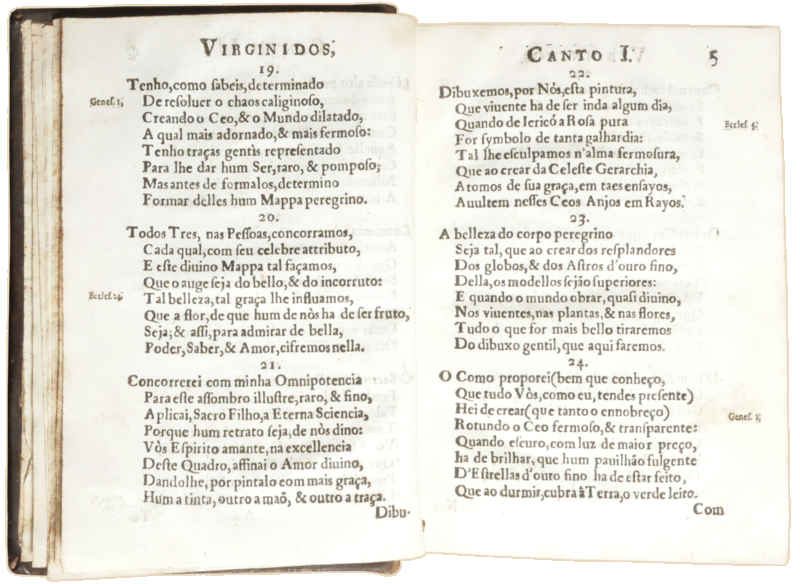 VIRGINIDOS,
19.
Tenho, como sabeis, determinado
Genes. 1,
De resoluer o chaos caliginoso,
Creando o Ceo, & o Mundo dilatado,
A qual mais adornado, & mais fermoso:
Tenho traças gentìs representado
Para lhe dar hum Ser, raro, & pomposo;
Mas antes de formalos, determino
Formar delles hum Mappa peregrino.
20.
Todos Tres, nas Pessoas, concorramos,
Cada qual, com seu celebre attributo,
E este diuino Mappa tal façamos,
Que o auge seja do bello, & do incorruto:
Eccles. 24.
Tal belleza, tal graça lhe influamos,
Que a flor, de que hum de nòs ha de ser fruto,
Seja; & assi, para admirar de bella,
Poder, Saber, & Amor, cifremos nella.
21.
Concorrerei com minha Omnipotencia
Para este assombro illustre, raro, & fino,
Aplicai, Sacro Filho, a Eterna Sciencia,
Porque hum retrato seja, de nòs dino:
Vòs Espirito amante, na excellencia
Deste Quadro, affinai o Amor diuino,
Dandolhe, por pintalo com mais graça,
Hum a tinta, outro a maõ, & outro a traça.
Dibu-
CANTO I. 5
22.
Dibuxemos, por Nòs, esta pintura,
Que viuente ha de ser inda algum dia,
Quando de Iericó a Rosa pura
Eccles.
For symbolo de tanta galhardia:
Tal lhe esculpamos n'alma fermosura,
Que ao crear da Celeste Gerarchia,
Atomos de sua graça, em taes ensayos,
Auultem nesses Ceos Anjos em Rayos.
23.
A belleza do corpo peregrino
Seja tal, que ao crear dos resplandores
Dos globos, & dos Astros d'ouro fino,
Della, os modellos sejão superiores:
E quando o mundo obrar, quasi diuino,
Nos viuentes, nas plantas, & nas flores,
Tudo o que for mais bello tiraremos
Do dibuxo gentil, que aqui faremos.
24.
O Como proporei (bem que conheço,
Que tudo Vòs, como eu, tendes presente)
Hei de crear (que tanto o ennobreço)
Genes. 1,
Rotundo o Ceo fermoso, & transparente:
Quando escuro, com luz de maior preço,
ha de brilhar, que hum pauilhão fulgente
D'Estrellas d'ouro fino ha de estar feito,
Que ao durmir, cubra à Terra, o verde leito.
Com